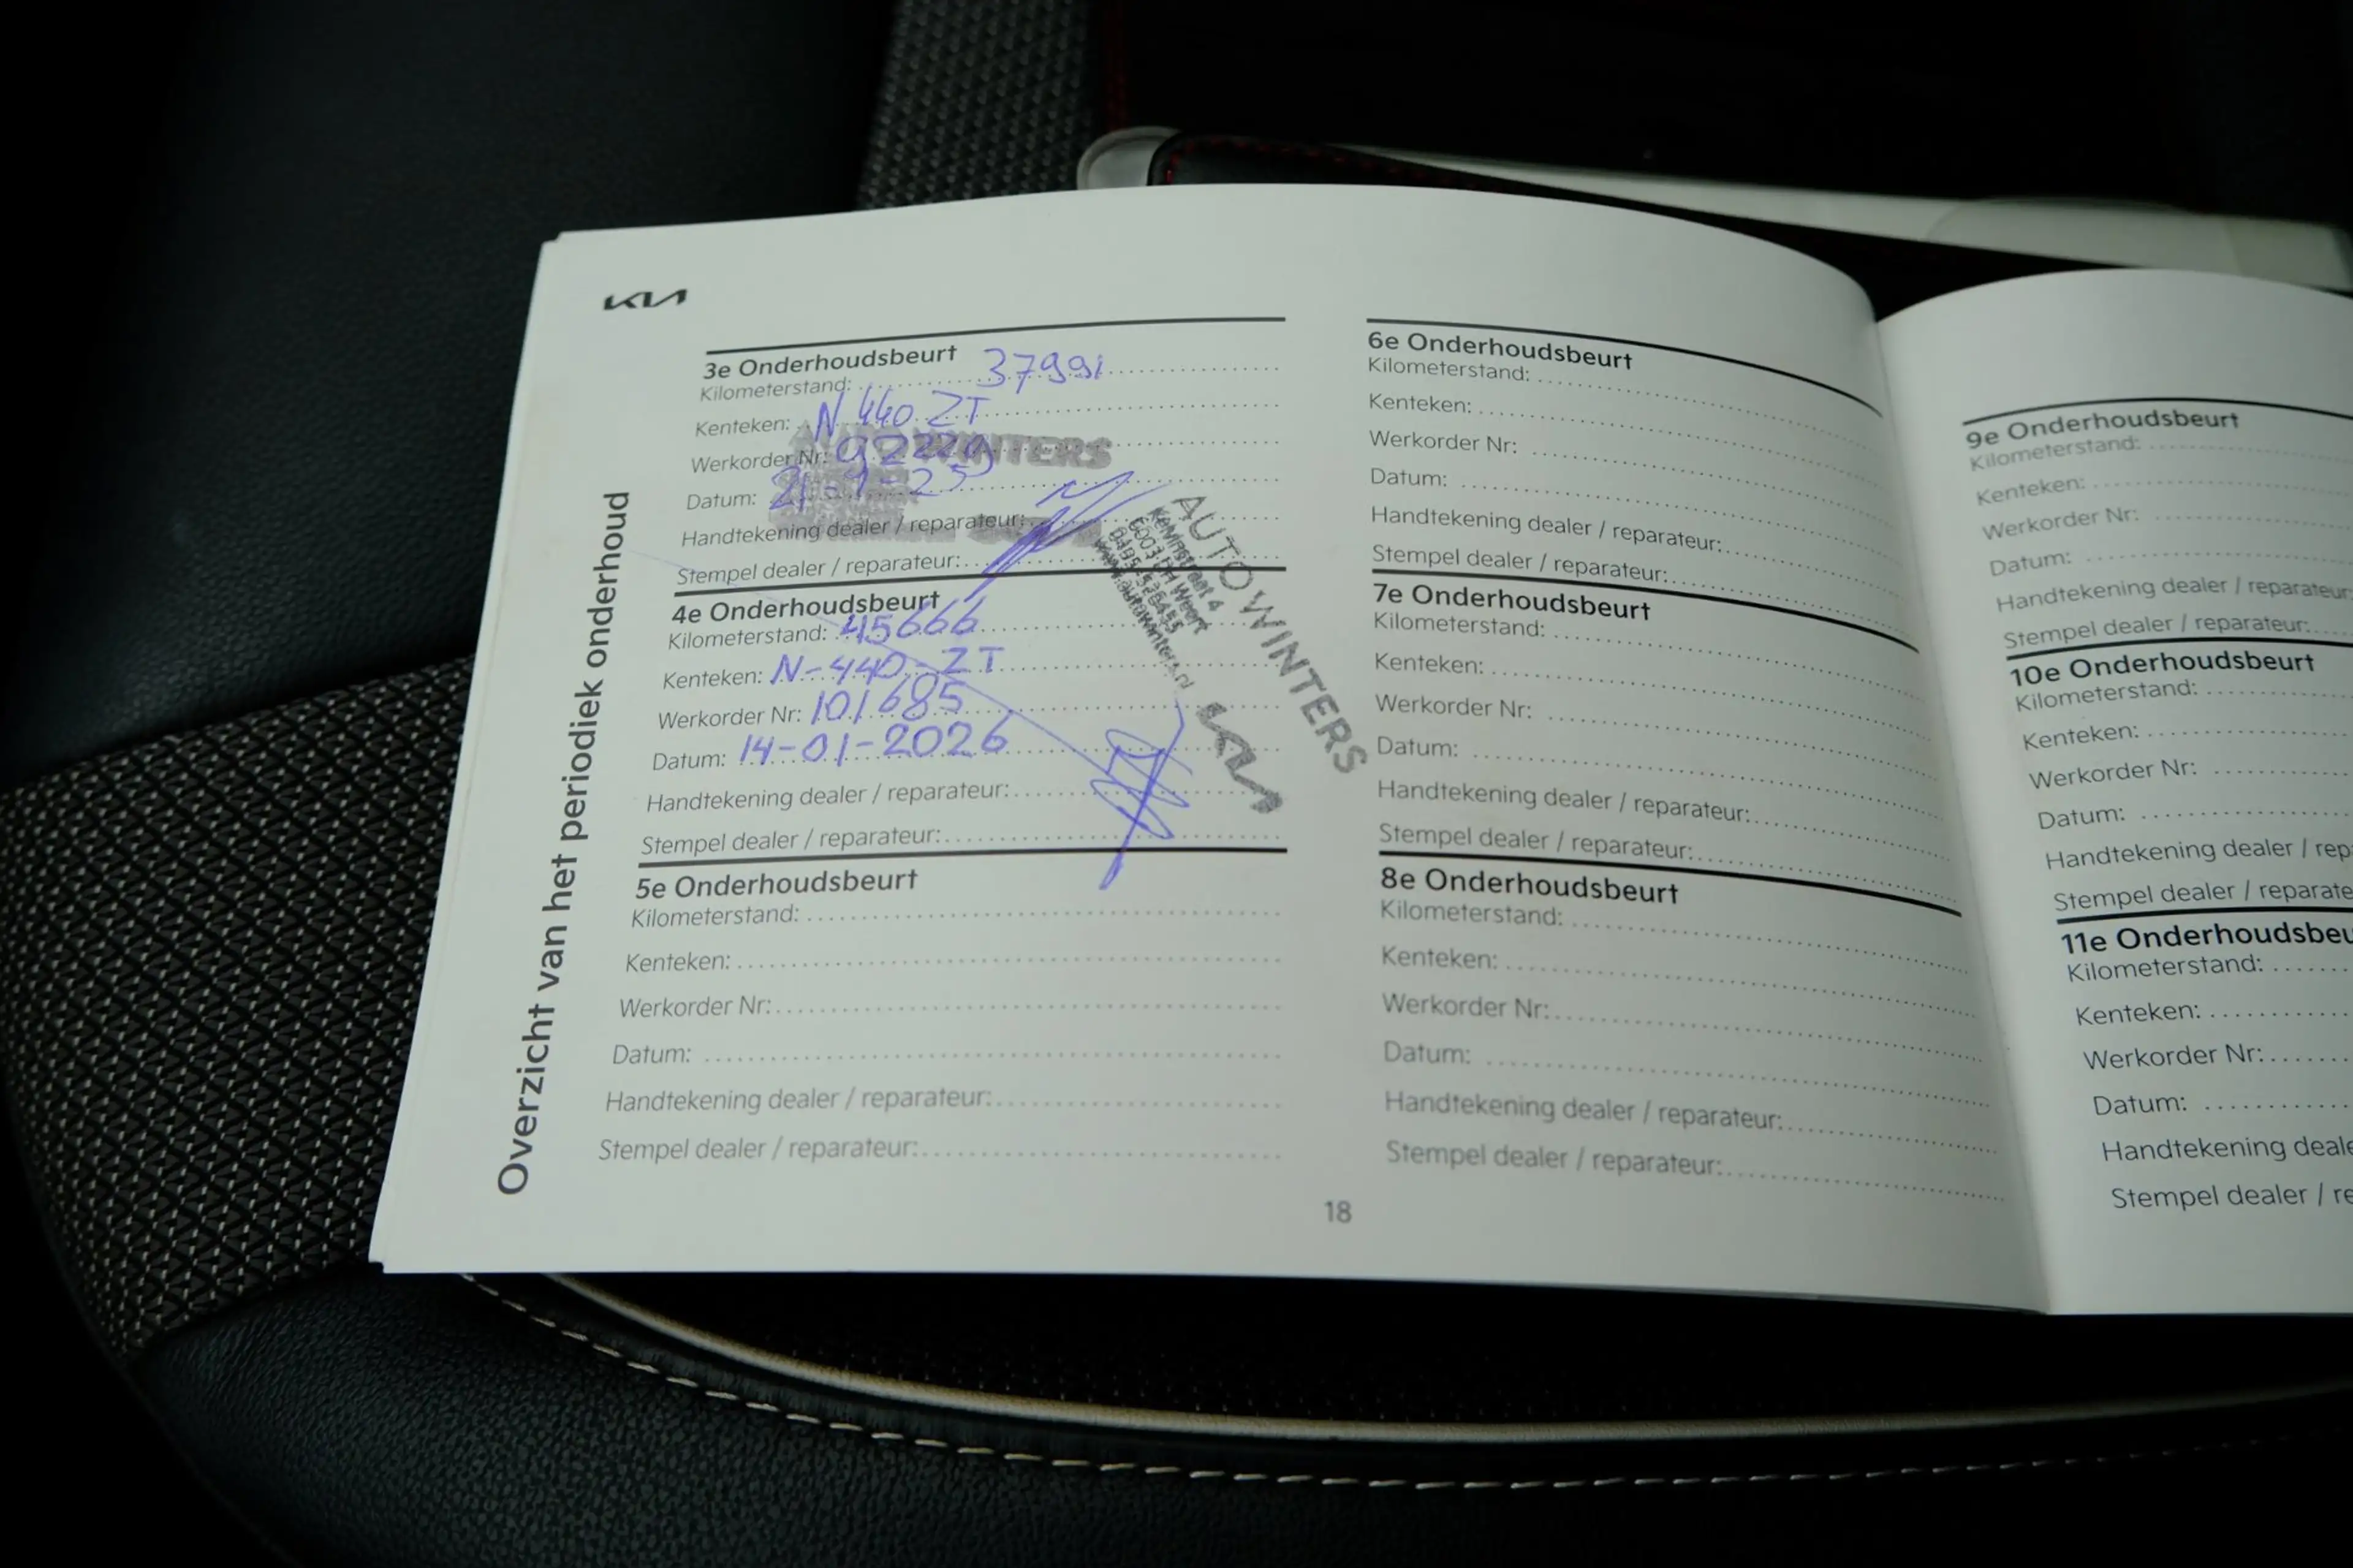 KIA
Overzicht van het periodiek onderhoud
3e Onderhoudsbeurt
Kilometerstand: 37991
Kenteken: N 440 ZT
Werkorder Nr: 92229
Datum: 21-1-25
Handtekening dealer / reparateur:
Stempel dealer / reparateur:
WINTERS
4e Onderhoudsbeurt
Kilometerstand: 45666
Kenteken: N-440-ZT
Werkorder Nr: 101685
Datum: 14-01-2026
Handtekening dealer / reparateur:
Stempel dealer / reparateur:
AUTO WINTERS
Kelvinstraat 4
6003 DH Weert
www.autowinters.nl
KIA
5e Onderhoudsbeurt
Kilometerstand:
Kenteken:
Werkorder Nr:
Datum:
Handtekening dealer / reparateur:
Stempel dealer / reparateur:
6e Onderhoudsbeurt
Kilometerstand:
Kenteken:
Werkorder Nr:
Datum:
Handtekening dealer / reparateur:
Stempel dealer / reparateur:
7e Onderhoudsbeurt
Kilometerstand:
Kenteken:
Werkorder Nr:
Datum:
Handtekening dealer / reparateur:
Stempel dealer / reparateur:
8e Onderhoudsbeurt
Kilometerstand:
Kenteken:
Werkorder Nr:
Datum:
Handtekening dealer / reparateur:
Stempel dealer / reparateur:
18
9e Onderhoudsbeurt
Kilometerstand:
Kenteken:
Werkorder Nr:
Datum:
Handtekening dealer / reparateur:
Stempel dealer / reparateur:
10e Onderhoudsbeurt
Kilometerstand:
Kenteken:
Werkorder Nr:
Datum:
Handtekening dealer / rep
Stempel dealer / reparate
11e Onderhoudsbeu
Kilometerstand:
Kenteken:
Werkorder Nr:
Datum:
Handtekening deale
Stempel dealer / re